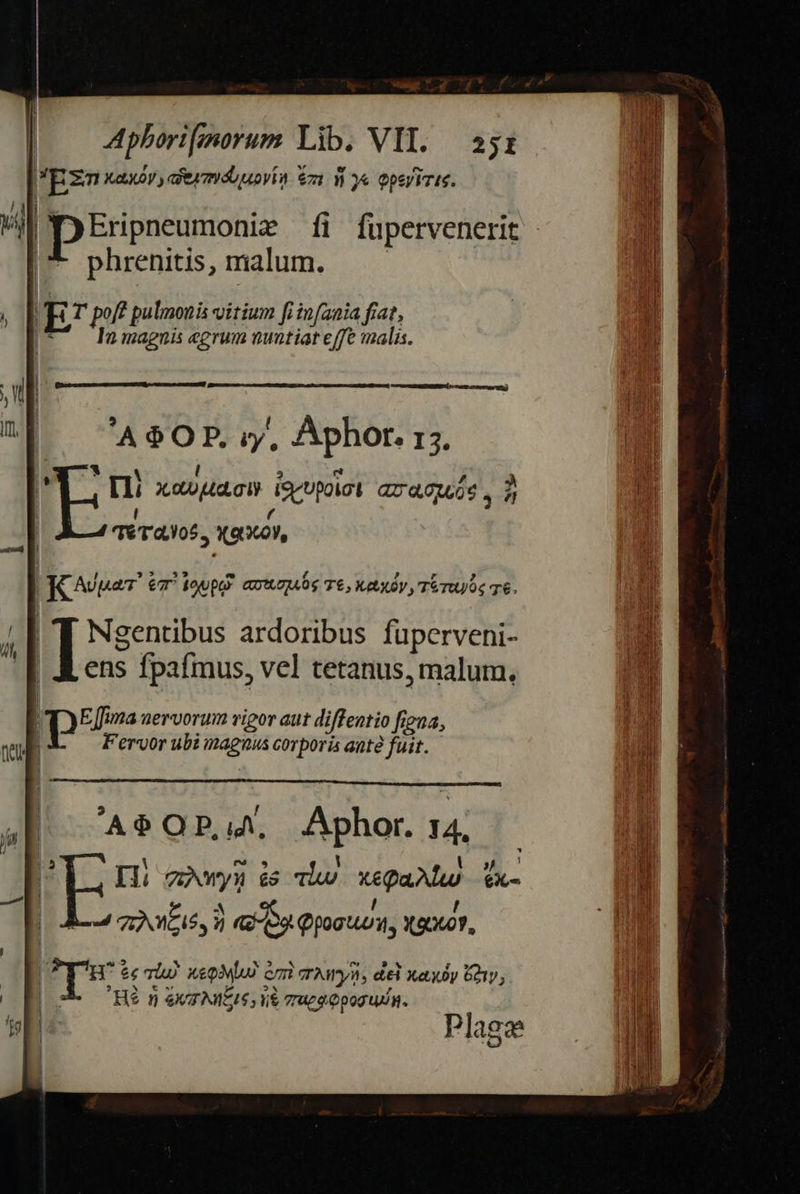 Aphoriſmorum Lib. VII. 251
ἜΣτι κακόν, περιπνευμονίη ἐπὶ ἤ γε φρενῖτις.
PEripneumoniæ ſi ſupervenerit
phrenitis, malum.
ET poſt pulmonis vitium ſi inſania fiat,
In magnis ægrum nuntiat eſſe malis.
ἈΦΟΡ. ιγ΄. Aphor. 13.
ἘΠὶ καύμασιν ἰσχυροῖσι σπασμὸς, ἢ
τέτανος, κακόν,
ΚΑύματ' ἐπ' ἰσχυρῷ σπασμός τε, κακόν, τέτανός τε.
INgentibus ardoribus ſuperveni-
ens ſpaſmus, vel tetanus, malum.
PEſſima nervorum rigor aut diſtentio ſigna,
Fervor ubi magnus corporis antè fuit.
ἈΦΟΡ. ιδ΄. Aphor. 14.
ἘΠὶ πληγῇ ἐς τὴν κεφαλὴν ἔκ-
πληξις, ἢ παραφροσύνη, κακόν,
Ἢ ἐς τὴν κεφαλὴν ἐπὶ πληγῇ, ἀεὶ κακόν ἐστιν,
Ἠὲ ἡ ἔκπληξις, ἠὲ παραφροσύνη.
Plagæ